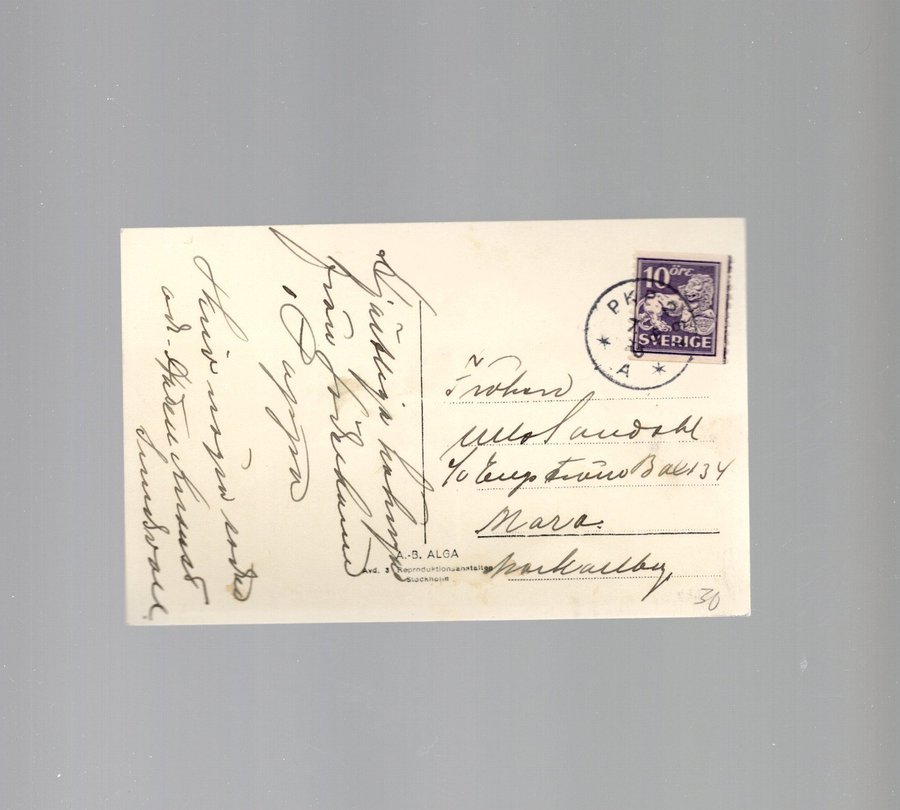 Hjärtliga hälsningar
från Söderhamn
Dagna
Skriv några rader
adr. Sundsvall
10 ÖRE
SVERIGE
PKP
A
Fröken
Ulla Sandahl
c/o Engström Box 134
Mora.
Morkarlby
A.-B. ALGA
Avd. 3 Reproduktionsanstalten
Stockholm
30